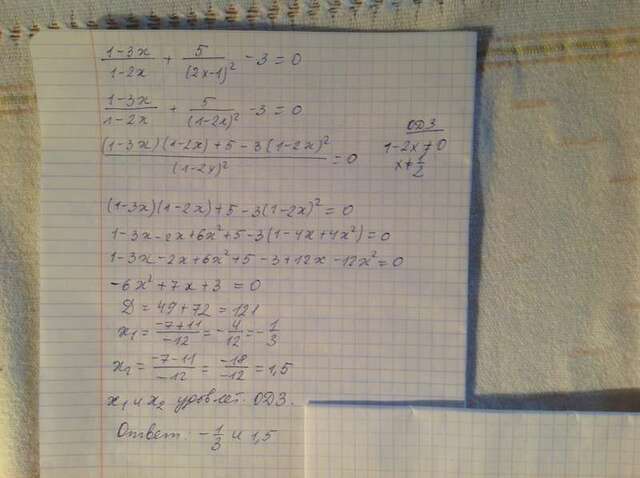 (1-3x)/(1-2x) + 5/(2x-1)² - 3 = 0
(1-3x)/(1-2x) + 5/(1-2x)² - 3 = 0
ОДЗ
1-2x ≠ 0
x ≠ 1/2
((1-3x)(1-2x)+5-3(1-2x)²)/(1-2x)² = 0
(1-3x)(1-2x)+5-3(1-2x)² = 0
1-3x-2x+6x²+5-3(1-4x+4x²) = 0
1-3x-2x+6x²+5-3+12x-12x² = 0
-6x²+7x+3 = 0
D = 49+72 = 121
x₁ = (-7+11)/(-12) = -4/12 = -1/3
x₂ = (-7-11)/(-12) = (-18)/(-12) = 1,5
x₁ и x₂ удовл. ОДЗ.
Ответ. -1/3 и 1,5